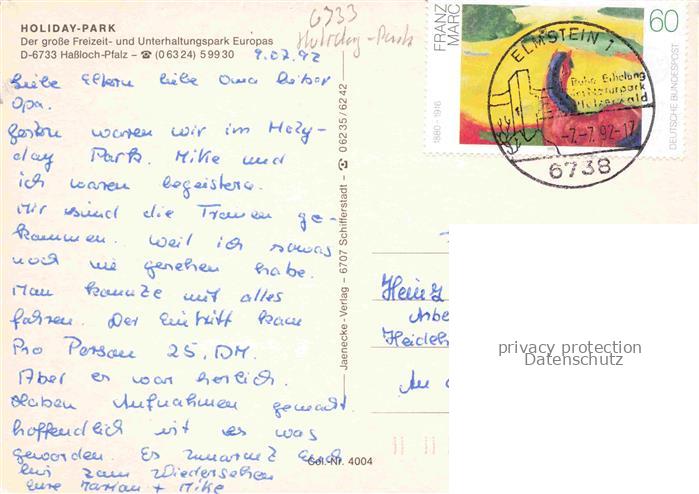 HOLIDAY-PARK
Der große Freizeit- und Unterhaltungspark Europas
D-6733 Haßloch-Pfalz - ☎ (06324) 59930
6733
Holiday-Park
9.07.92
Liebe Eltern liebe Oma lieber
Opa.
Gestern waren wir im Holy-
day Park. Mike und
ich waren begeistern.
Mir sind die Tränen ge-
kommen. Weil ich sowas
noch nie gesehen habe.
Man kannze mit alles
fahren. Der Eintritt kam
Pro Person 25,DM.
Aber es war herlich.
Haben Aufnahmen gemacht.
hoffendlich ist es was
geworden. Es
bis zum Wiedersehen
Eure Marion + Mike
Jaenecke-Verlag - 6707 Schifferstadt - ☎ 06235/6242
Col.-Nr. 4004
FRANZ MARC
1880-1916
60
DEUTSCHE BUNDESPOST
ELMSTEIN 1
Ruhe Erholung
im Naturpark
Pfälzerwald
-7.-7.92-17
6738
Heinz
Arbe
Heideh
An
privacy protection
Datenschutz